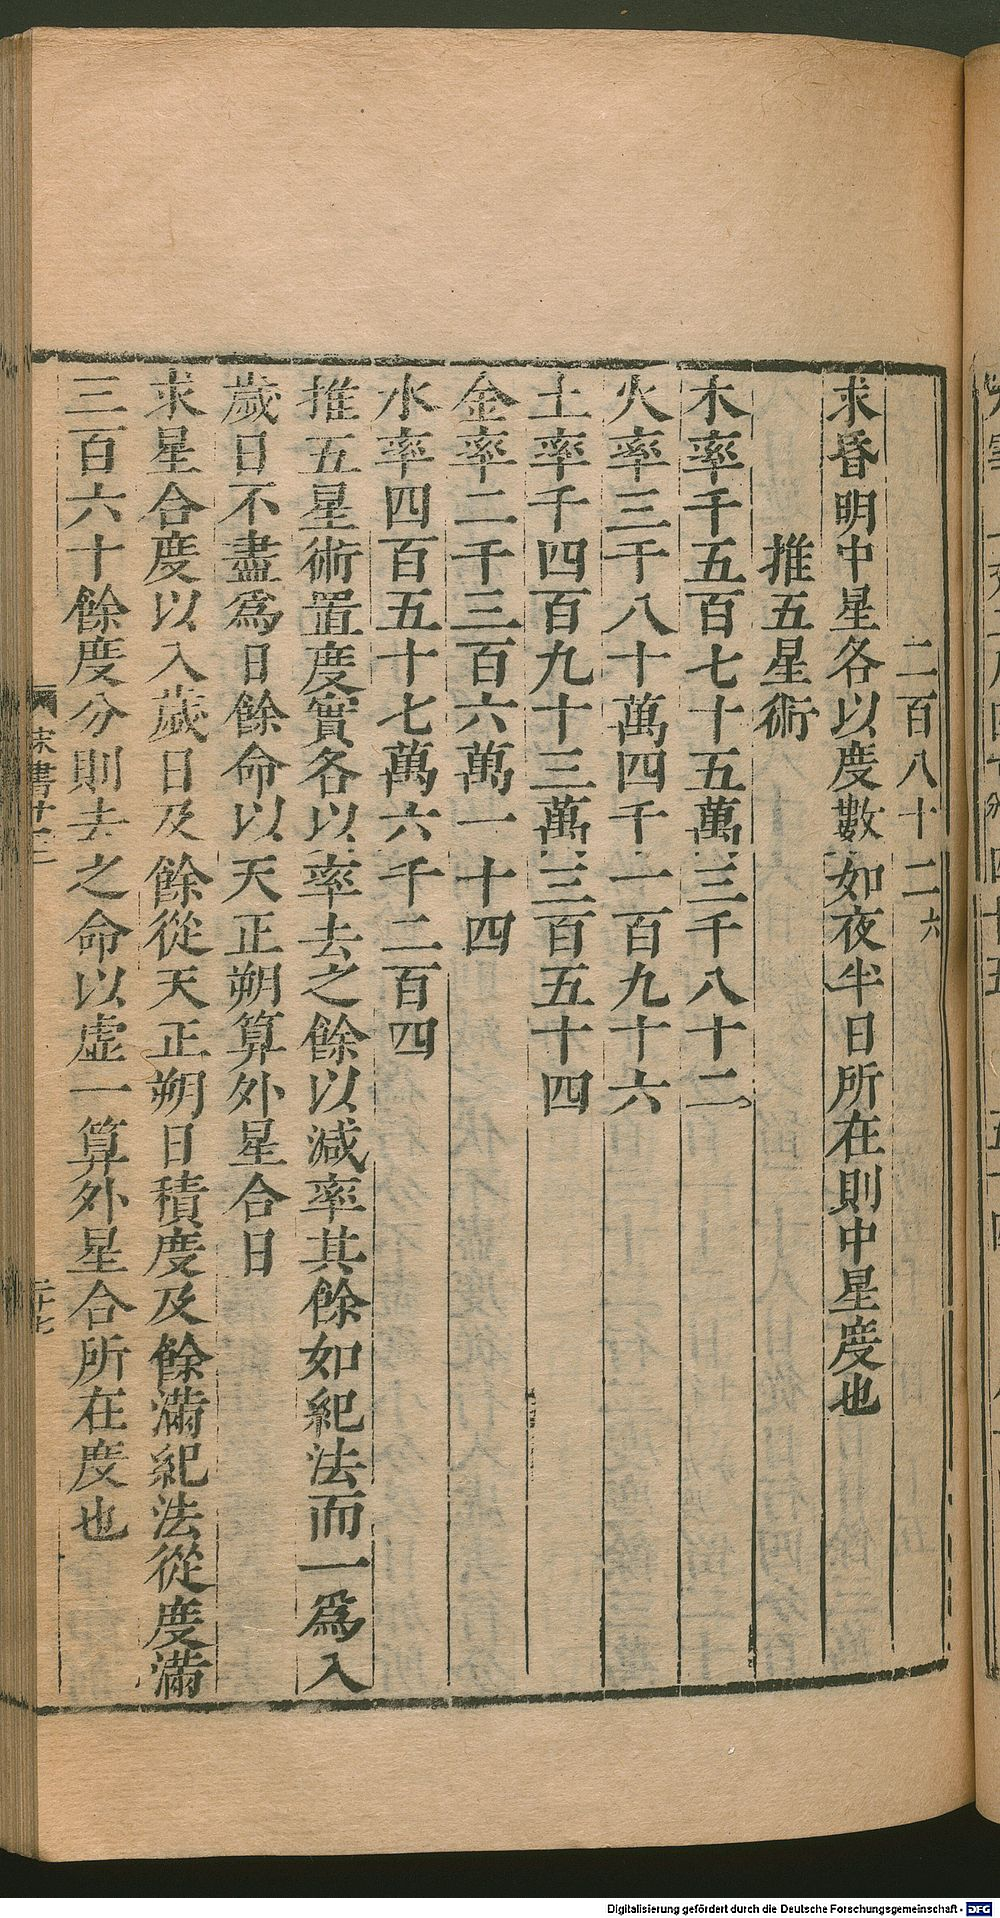 二百八十二六
求昏明中星各以度數如夜半日所在則中星度也
推五星術
木率千五百七十五萬三千八十二
火率三千八十萬四千一百九十六
土率千四百九十三萬三百五十四
金率二千三百六萬一十四
水率四百五十七萬六千二百四
推五星術置度實各以率去之餘以減率其餘如紀法而一爲入
歲日不盡爲日餘命以天正朔算外星合日
求星合度以入歲日及餘從天正朔日積度及餘滿紀法從度滿
三百六十餘度分則去之命以虛一算外星合所在度也
宋書十三
二十七
Digitalisierung gefördert durch die Deutsche Forschungsgemeinschaft - DFG